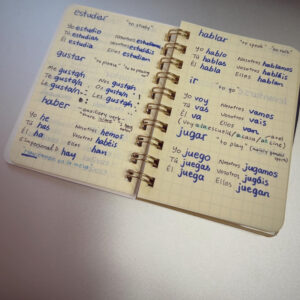 estudiar "to study"
Yo estudio Nosotros estudiamos
Tú estudias
Él estudia Ellos estudian
gustar
Me gusta/n Nos gusta/n
Te gusta/n Os gusta/n
Le gusta/n Les gusta/n
haber
Yo he Nosotros hemos
Tú has Vosotros habéis
Él ha Ellos han
hay
hablar "to speak"
Yo hablo Nosotros hablamos
Tú hablas Vosotros habláis
Él habla Ellos hablan
ir "to go"
Yo voy Nosotros vamos
Tú vas Vosotros vais
Él va Ellos van
jugar
"to play"
Yo juego Nosotros jugamos
Tú juegas Vosotros jugáis
Él juega Ellos juegan